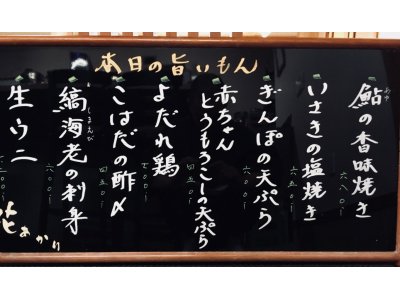 本日の旨いもん
鮎の香味焼き
あゆ
六八〇円
いさきの塩焼き
六五〇円
ぎんぽの天ぷら
六〇〇円
赤ちゃん
とうもろこしの天ぷら
四五〇円
よだれ鶏
こはだの酢〆
四五〇円
縞海老の刺身
しまえび
六〇〇円
生ウニ
花あかり